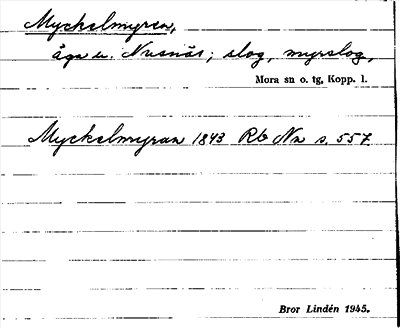 Myckelmyren,
äga u. Nusnäs; slog, myrslog,
Mora sn o. tg, Kopp. l.
Myckelmyran 1843 Rb Nn s. 557.
Bror Lindén 1945.